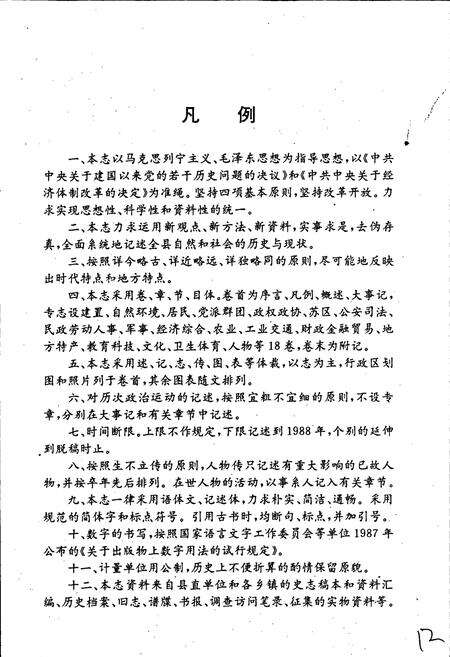 凡 例
一、本志以马克思列宁主义、毛泽东思想为指导思想,以《中共
中央关于建国以来党的若干历史问题的决议》和《中共中央关于经
济体制改革的决定》为准绳。坚持四项基本原则,坚持改革开放。力
求实现思想性、科学性和资料性的统一。
二、本志力求运用新观点、新方法、新资料,实事求是,去伪存
真,全面系统地记述全县自然和社会的历史与现状。
三、按照详今略古、详近略远、详独略同的原则,尽可能地反映
出时代特点和地方特点。
四、本志采用卷、章、节、目体。卷首为序言、凡例、概述、大事记,
专志设建置、自然环境、居民、党派群团、政权政协、苏区、公安司法、
民政劳动人事、军事、经济综合、农业、工业交通、财政金融贸易、地
方特产、教育科技、文化、卫生体育、人物等18卷,卷末为附记。
五、本志采用述、记、志、传、图、表等体裁,以志为主,行政区划
图和照片列于卷首,其余图表随文排列。
六、对历次政治运动的记述,按照宜粗不宜细的原则,不设专
章,分别在大事记和有关章节中记述。
七、时间断限。上限不作规定,下限记述到1988年,个别的延伸
到脱稿时止。
八、按照生不立传的原则,人物传只记述有重大影响的已故人
物,并按卒年先后排列。在世人物的活动,以事系人记入有关章节。
九、本志一律采用语体文、记述体,力求朴实、简洁、通畅。采用
规范的简体字和标点符号。引用古书时,均断句、标点,并加引号。
十、数字的书写,按照国家语言文字工作委员会等单位1987年
公布的《关于出版物上数字用法的试行规定》。
十一、计量单位用公制,历史上不便折算的酌情保留原貌。
十二、本志资料来自县直单位和各乡镇的史志稿本和资料汇
编、历史档案、旧志、谱牒、书报、调查访问笔录、征集的实物资料等。
12